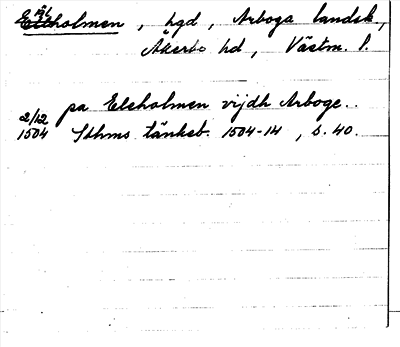 Älholmen, hgd, Arboga landsk,
Åkerbo hd, Västm. l.
pa Elsholmen vijdh Arboge..
2/12
1504 Sthms tänkeb. 1504-14, s. 40.